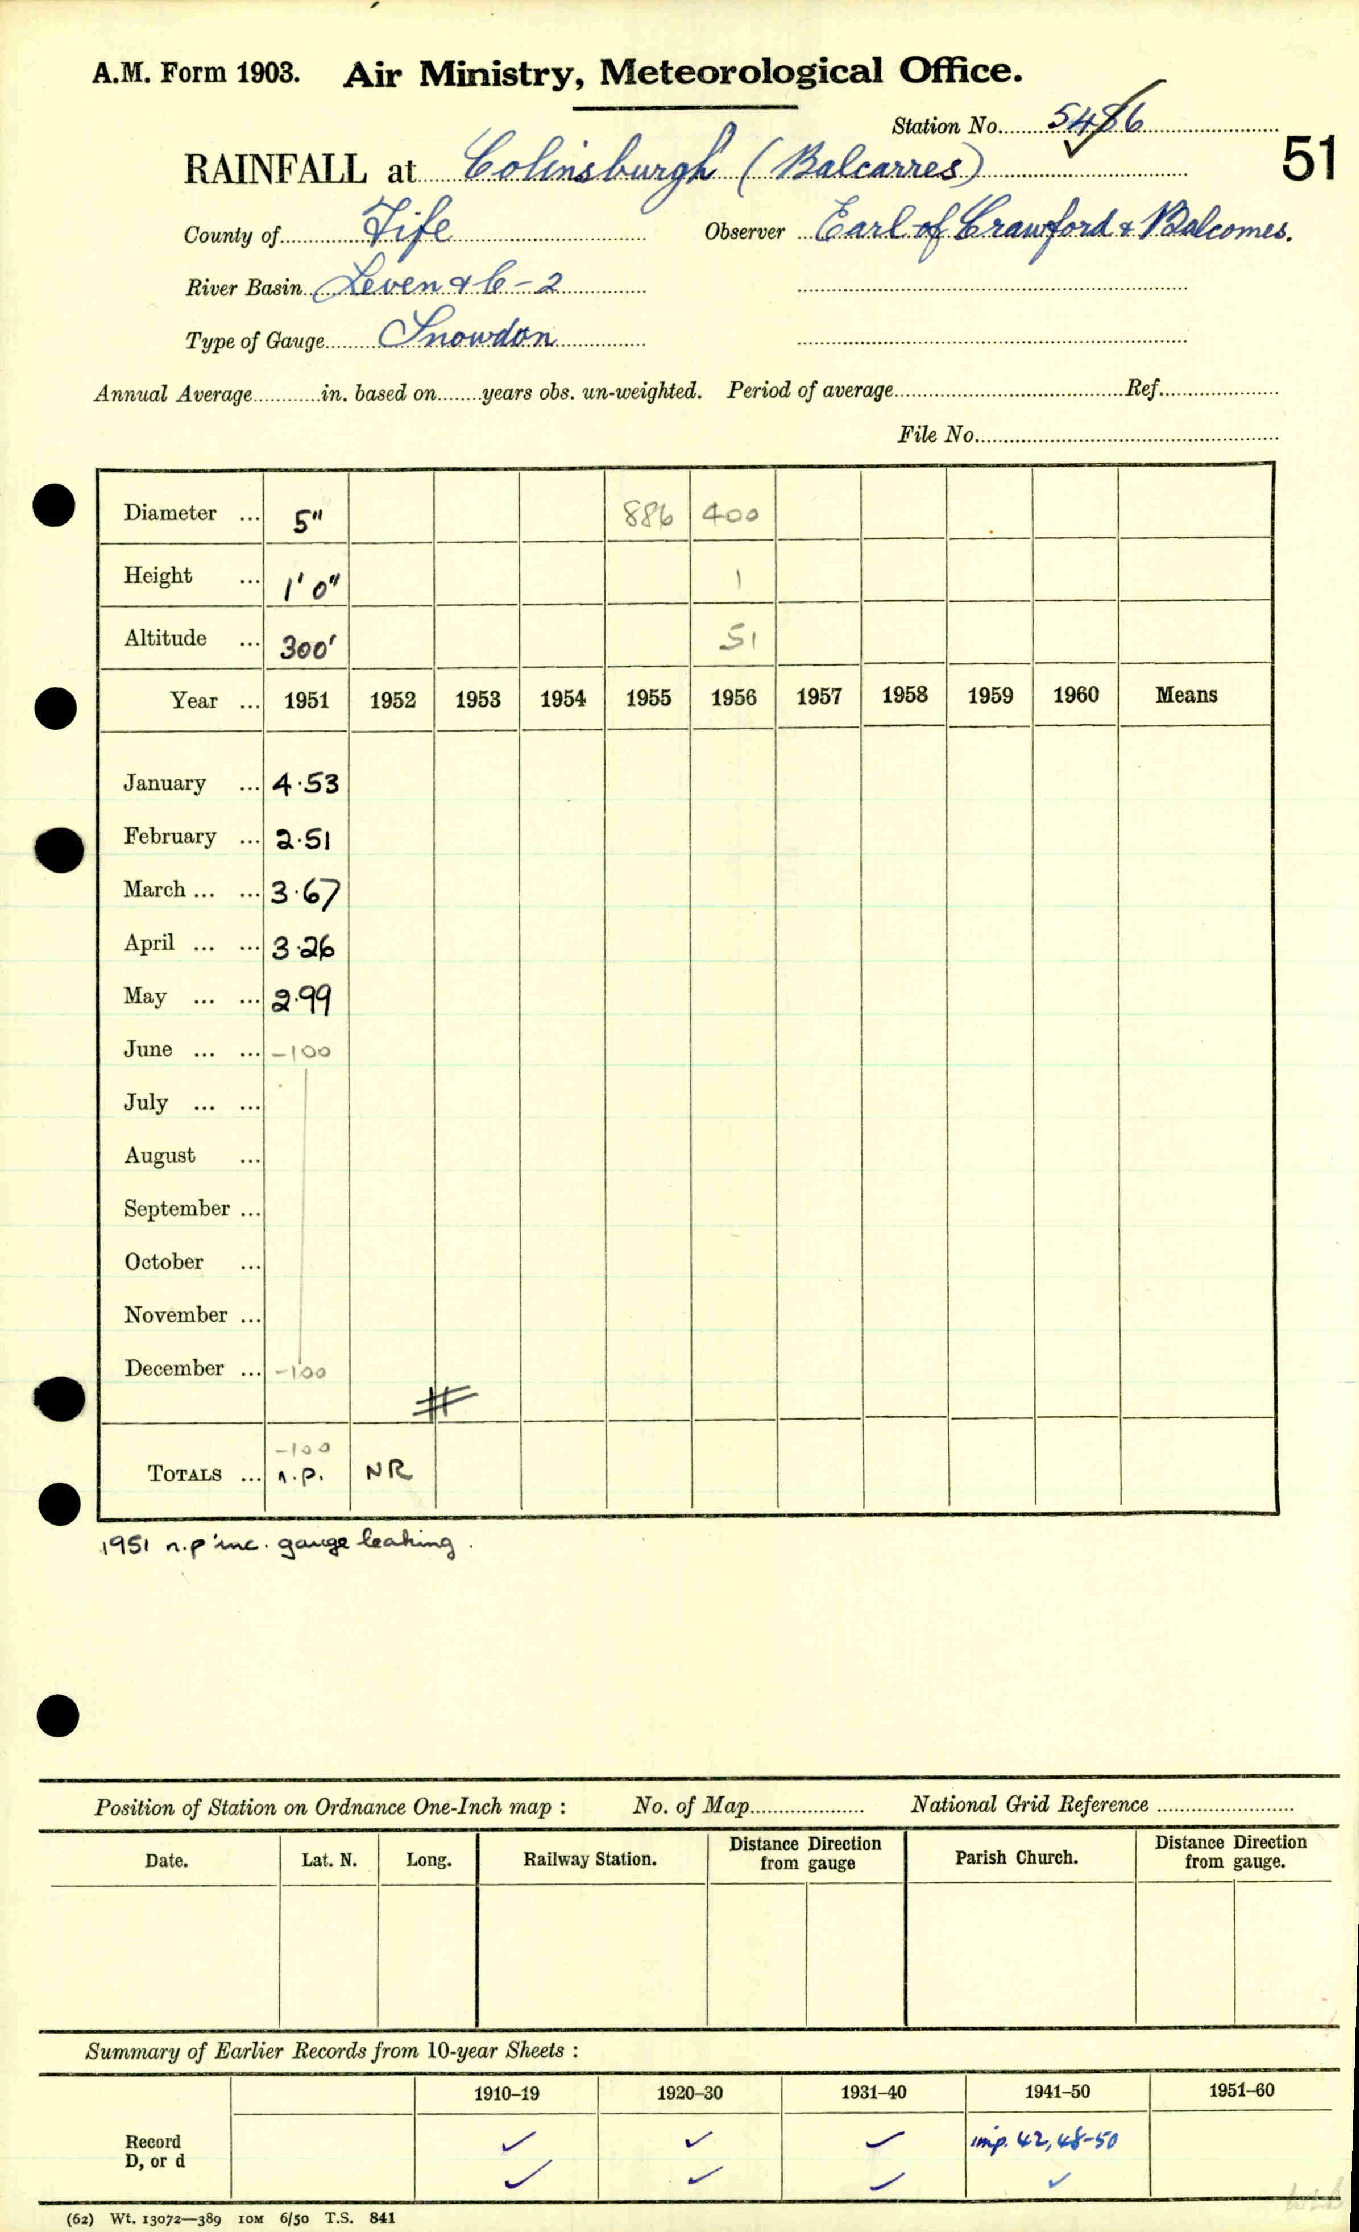 A.M. Form 1903. Air Ministry, Meteorological Office.
Station No. 5486
51
RAINFALL at Colinsburgh (Balcarres)
County of Fife Observer Earl of Crawford & Balcomes.
River Basin Leven & C-2
Type of Gauge Snowdon
Annual Average in. based on years obs. un-weighted. Period of average Ref.
File No.
Diameter ... 5" 886 400
Height ... 1' 0" 1
Altitude ... 300' 51
Year ... 1951 1952 1953 1954 1955 1956 1957 1958 1959 1960 Means
January ... 4·53
February ... 2·51
March ... ... 3·67
April ... ... 3·26
May ... ... 2·99
June ... ... -100
July ... ...
August ...
September ...
October ...
November ...
December ... -100
#
-100
TOTALS ... n.p. NR
1951 n.p inc. gauge leaking.
Position of Station on Ordnance One-Inch map : No. of Map National Grid Reference
Date. Lat. N. Long. Railway Station. Distance from Direction gauge Parish Church. Distance from Direction gauge.
Summary of Earlier Records from 10-year Sheets :
1910–19 1920–30 1931–40 1941–50 1951–60
Record ✓ ✓ ✓ imp. 42, 48-50
D, or d ✓ ✓ ✓ ✓
(62) Wt. 13072—389 10M 6/50 T.S. 841